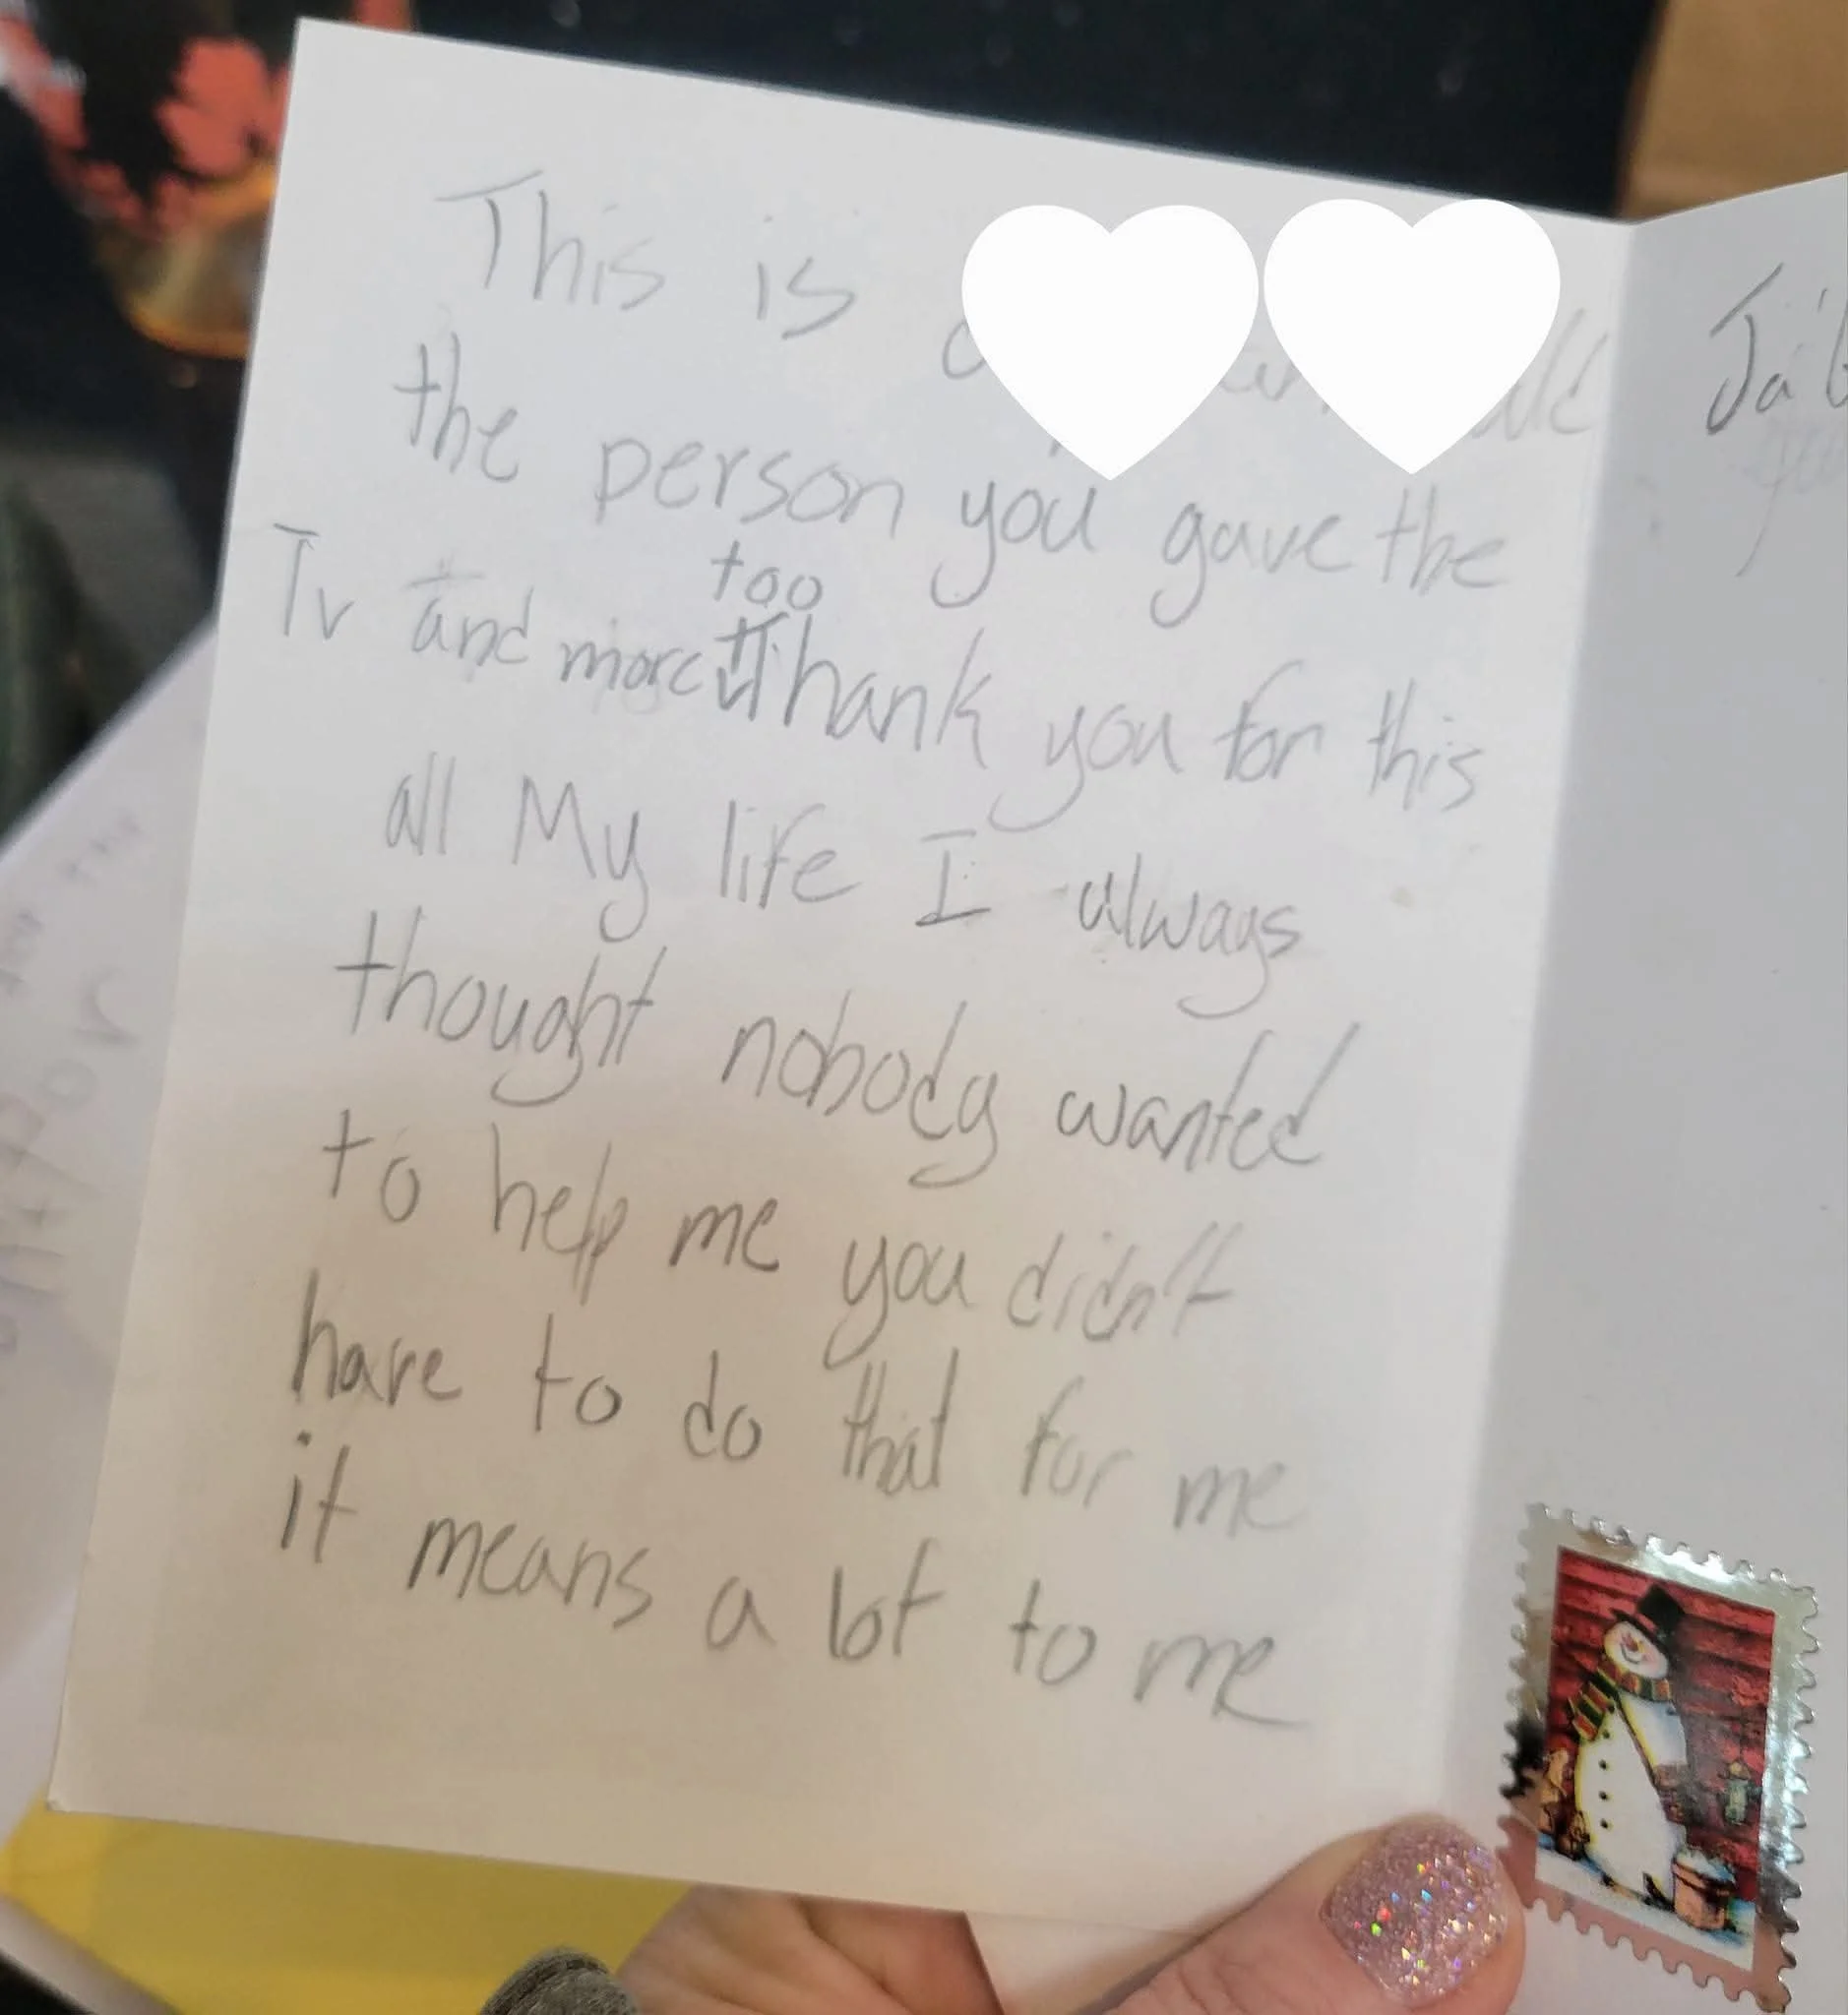 This is
the person you gave the
too
Tv and more Thank you for this
all My life I always
thought nobody wanted
to help me you didn't
have to do that for me
it means a lot to me